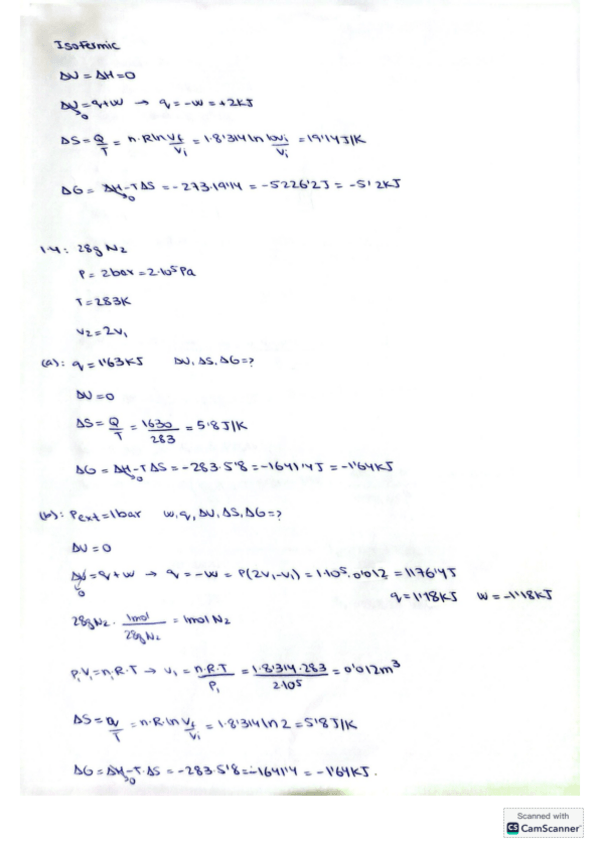 Isotermic
ΔU = ΔH = 0
ΔU = q + w → q = -w = +2KJ
0
ΔS = Q/T = n·R ln Vf/Vi = 1·8'314 ln 10Vi/Vi = 19'14 J/K
ΔG = ΔH - TΔS = -273·19'14 = -5226'2J = -5'2KJ
0
1.4: 28g N2
P = 2bar = 2·10⁵ Pa
T = 283K
V2 = 2V1
(a): q = 1'63KJ ΔU, ΔS, ΔG = ?
ΔU = 0
ΔS = Q/T = 1630/283 = 5'8 J/K
ΔG = ΔH - TΔS = -283·5'8 = -1641'4J = -1'64KJ
0
(b): Pext = 1bar w, q, ΔU, ΔS, ΔG = ?
ΔU = 0
ΔU = q + w → q = -w = P(2V1 - V1) = 1·10⁵·0'012 = 1176'4J
0
q = 1'18KJ w = -1'18KJ
28g N2 · 1mol/28g N2 = 1mol N2
P1V1 = n·R·T → V1 = n·R·T/P1 = 1·8'314·283/2·10⁵ = 0'012m³
ΔS = Q/T = n·R·ln Vf/Vi = 1·8'314 ln 2 = 5'8 J/K
ΔG = ΔH - T·ΔS = -283·5'8 = -1641'4 = -1'64KJ.
0
Scanned with
CS CamScanner